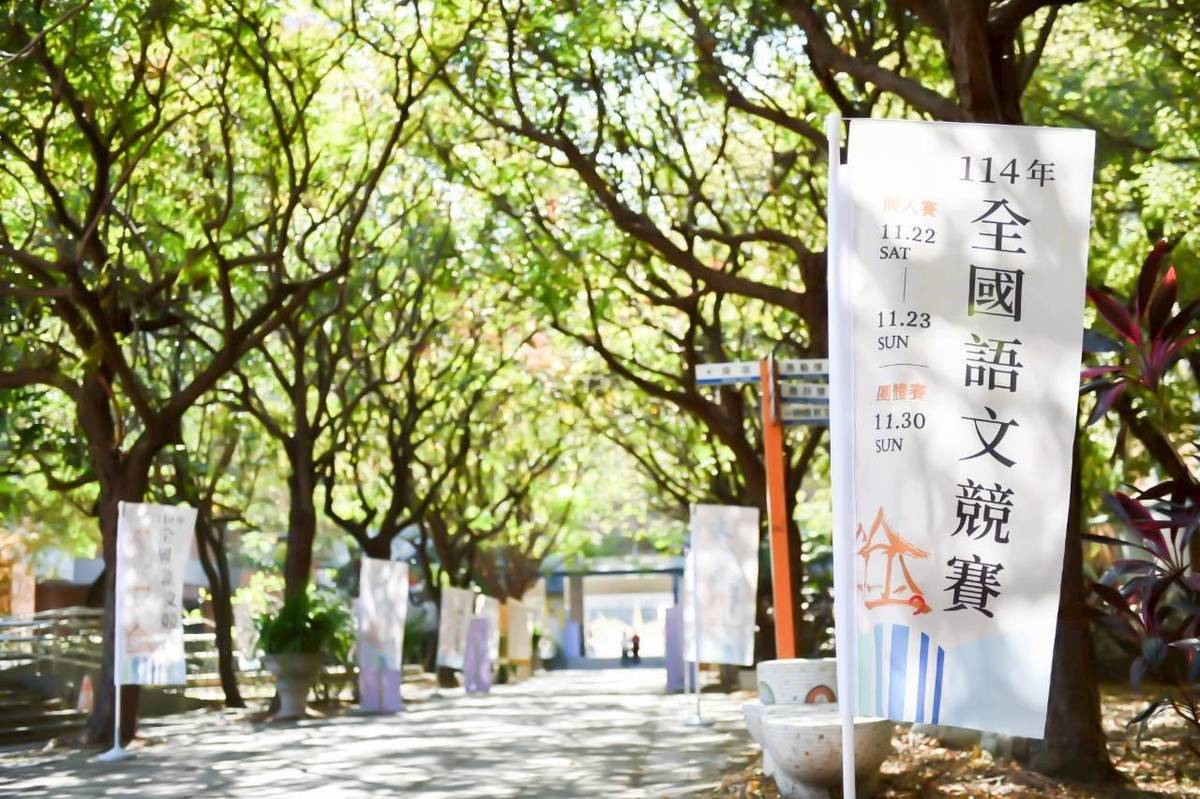 114年
全國語文競賽
個人賽
11.22
SAT
11.23
SUN
團體賽
11.30
SUN